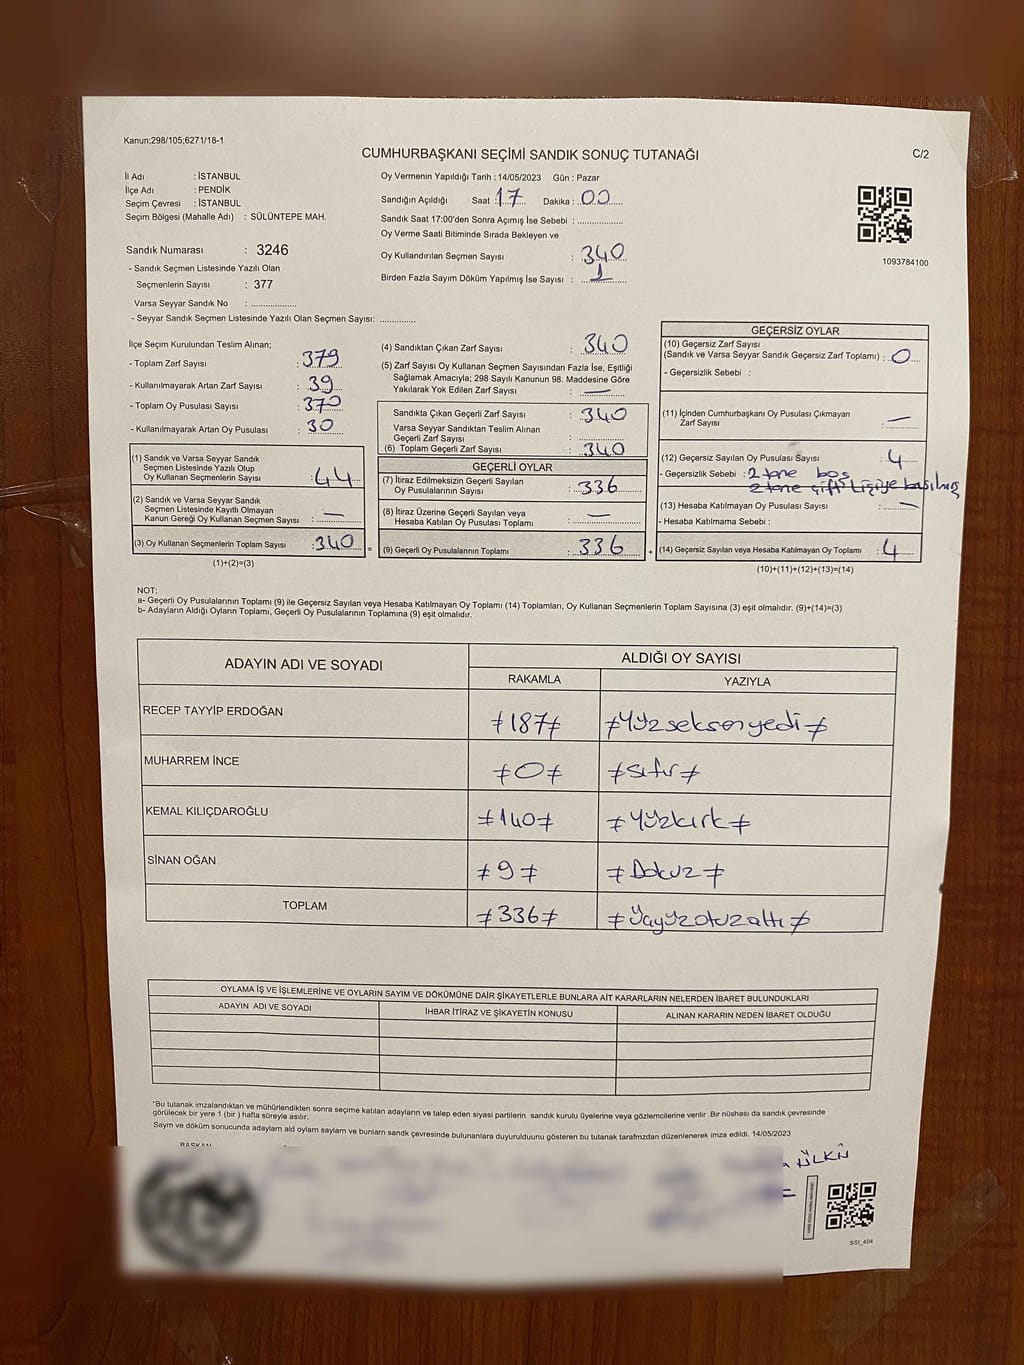 Kanun:298/105;6271/18-1
CUMHURBAŞKANI SEÇİMİ SANDIK SONUÇ TUTANAĞI
C/2
İl Adı : İSTANBUL
İlçe Adı : PENDİK
Seçim Çevresi : İSTANBUL
Seçim Bölgesi (Mahalle Adı) : SÜLÜNTEPE MAH.
Sandık Numarası : 3246
- Sandık Seçmen Listesinde Yazılı Olan
Seçmenlerin Sayısı : 377
Varsa Seyyar Sandık No : ..................
- Seyyar Sandık Seçmen Listesinde Yazılı Olan Seçmen Sayısı: ..............
Oy Vermenin Yapıldığı Tarih : 14/05/2023 Gün : Pazar
Sandığın Açıldığı Saat : 17 Dakika : 00
Sandık Saat 17:00'den Sonra Açımış İse Sebebi : ..................
Oy Verme Saati Bitiminde Sırada Bekleyen ve
Oy Kullandırılan Seçmen Sayısı : 340
Birden Fazla Sayım Döküm Yapılmış İse Sayısı : 1
1093784100
İlçe Seçim Kurulundan Teslim Alınan;
- Toplam Zarf Sayısı : 379
- Kullanılmayarak Artan Zarf Sayısı : 39
- Toplam Oy Pusulası Sayısı : 370
- Kullanılmayarak Artan Oy Pusulası : 30
(1) Sandık ve Varsa Seyyar Sandık
Seçmen Listesinde Yazılı Olup
Oy Kullanan Seçmenlerin Sayısı : 44
(2) Sandık ve Varsa Seyyar Sandık
Seçmen Listesinde Kayıtlı Olmayan
Kanun Gereği Oy Kullanan Seçmen Sayısı : —
(3) Oy Kullanan Seçmenlerin Toplam Sayısı : 340 =
(1)+(2)=(3)
(4) Sandıktan Çıkan Zarf Sayısı : 340
(5) Zarf Sayısı Oy Kullanan Seçmen Sayısından Fazla İse, Eşitliği
Sağlamak Amacıyla; 298 Sayılı Kanunun 98. Maddesine Göre
Yakılarak Yok Edilen Zarf Sayısı : —
Sandıkta Çıkan Geçerli Zarf Sayısı : 340
Varsa Seyyar Sandıktan Teslim Alınan
Geçerli Zarf Sayısı : ..................
(6) Toplam Geçerli Zarf Sayısı : 340
GEÇERLİ OYLAR
(7) İtiraz Edilmeksizin Geçerli Sayılan
Oy Pusulalarının Sayısı : 336
(8) İtiraz Üzerine Geçerli Sayılan veya
Hesaba Katılan Oy Pusulası Toplamı : —
(9) Geçerli Oy Pusulalarının Toplamı : 336 +
GEÇERSİZ OYLAR
(10) Geçersiz Zarf Sayısı
(Sandık ve Varsa Seyyar Sandık Geçersiz Zarf Toplamı) : 0
- Geçersizlik Sebebi :
(11) İçinden Cumhurbaşkanı Oy Pusulası Çıkmayan
Zarf Sayısı : —
(12) Geçersiz Sayılan Oy Pusulası Sayısı : 4
- Geçersizlik Sebebi : 2 tane boş
2 tane çift kişiye basılmış
(13) Hesaba Katılmayan Oy Pusulası Sayısı : —
- Hesaba Katılmama Sebebi :
(14) Geçersiz Sayılan veya Hesaba Katılmayan Oy Toplamı : 4
(10)+(11)+(12)+(13)=(14)
NOT:
a- Geçerli Oy Pusulalarının Toplamı (9) ile Geçersiz Sayılan veya Hesaba Katılmayan Oy Toplamı (14) Toplamları, Oy Kullanan Seçmenlerin Toplam Sayısına (3) eşit olmalıdır. (9)+(14)=(3)
b- Adayların Aldığı Oyların Toplamı, Geçerli Oy Pusulalarının Toplamına (9) eşit olmalıdır.
ADAYIN ADI VE SOYADI ALDIĞI OY SAYISI
RAKAMLA YAZIYLA
RECEP TAYYİP ERDOĞAN ≠187≠ ≠Yüzseksenyedi≠
MUHARREM İNCE ≠0≠ ≠Sıfır≠
KEMAL KILIÇDAROĞLU ≠140≠ ≠Yüzkırk≠
SİNAN OĞAN ≠9≠ ≠Dokuz≠
TOPLAM ≠336≠ ≠Üçyüzotuzaltı≠
OYLAMA İŞ VE İŞLEMLERİNE VE OYLARIN SAYIM VE DÖKÜMÜNE DAİR ŞİKAYETLERLE BUNLARA AİT KARARLARIN NELERDEN İBARET BULUNDUKLARI
ADAYIN ADI VE SOYADI İHBAR İTİRAZ VE ŞİKAYETİN KONUSU ALINAN KARARIN NEDEN İBARET OLDUĞU
*Bu tutanak imzalandıktan ve mühürlendikten sonra seçime katılan adayların ve talep eden siyasi partilerin sandık kurulu üyelerine veya gözlemcilerine verilir .Bir nüshası da sandık çevresinde
görülecek bir yere 1 (bir ) hafta süreyle asılır.
Sayım ve döküm sonucunda adayların aldı oyların sayların ve bunların sandk çevresinde bulunanlara duyurulduunu gösteren bu tutanak tarafmzdan düzenlenerek imza edildi. 14/05/2023
BAŞKAN
ÜLKÜ
SSI_404